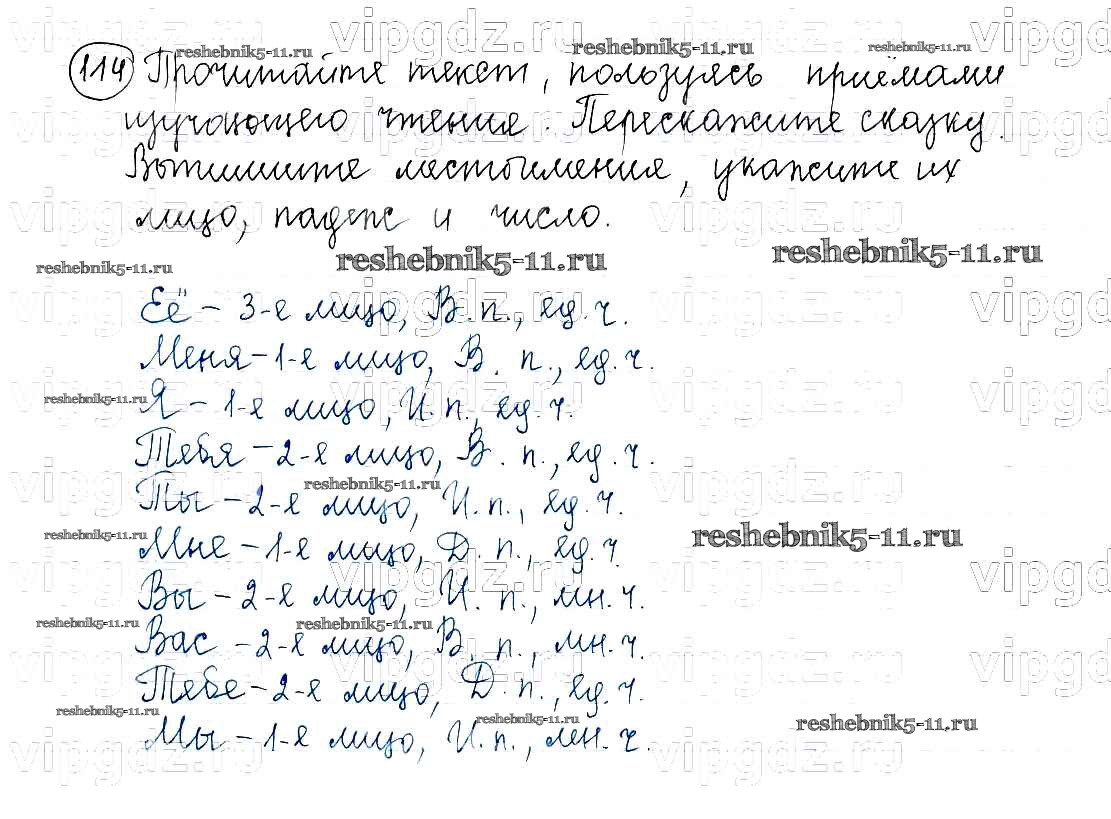 114 Прочитайте текст, пользуясь приёмами
изучающего чтения. Перескажите сказку.
Выпишите местоимения, укажите их
лицо, падеж и число.
Её – 3-е лицо, В.п., ед.ч.
Меня – 1-е лицо, В.п., ед.ч.
Я – 1-е лицо, И.п., ед.ч.
Тебя – 2-е лицо, В.п., ед.ч.
Ты – 2-е лицо, И.п., ед.ч.
Мне – 1-е лицо, Д.п., ед.ч.
Вы – 2-е лицо, И.п., мн.ч.
Вас – 2-е лицо, В.п., мн.ч.
Тебе – 2-е лицо, Д.п., ед.ч.
Мы – 1-е лицо, И.п., мн.ч.
reshebnik5-11.ru
vipgdz.ru